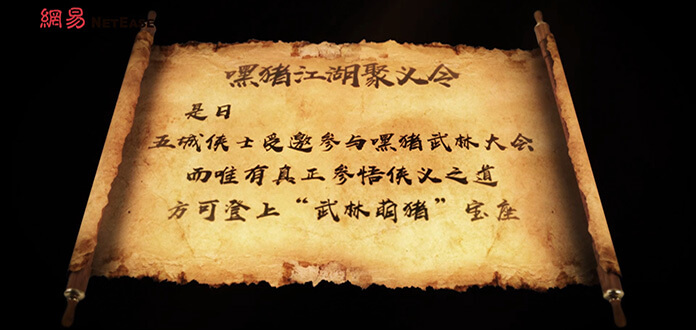 網易 NetEase
嘿猪江湖聚义令
是日
五城侠士受邀参与嘿猪武林大会
而唯有真正参悟侠义之道
方可登上“武林萌猪”宝座